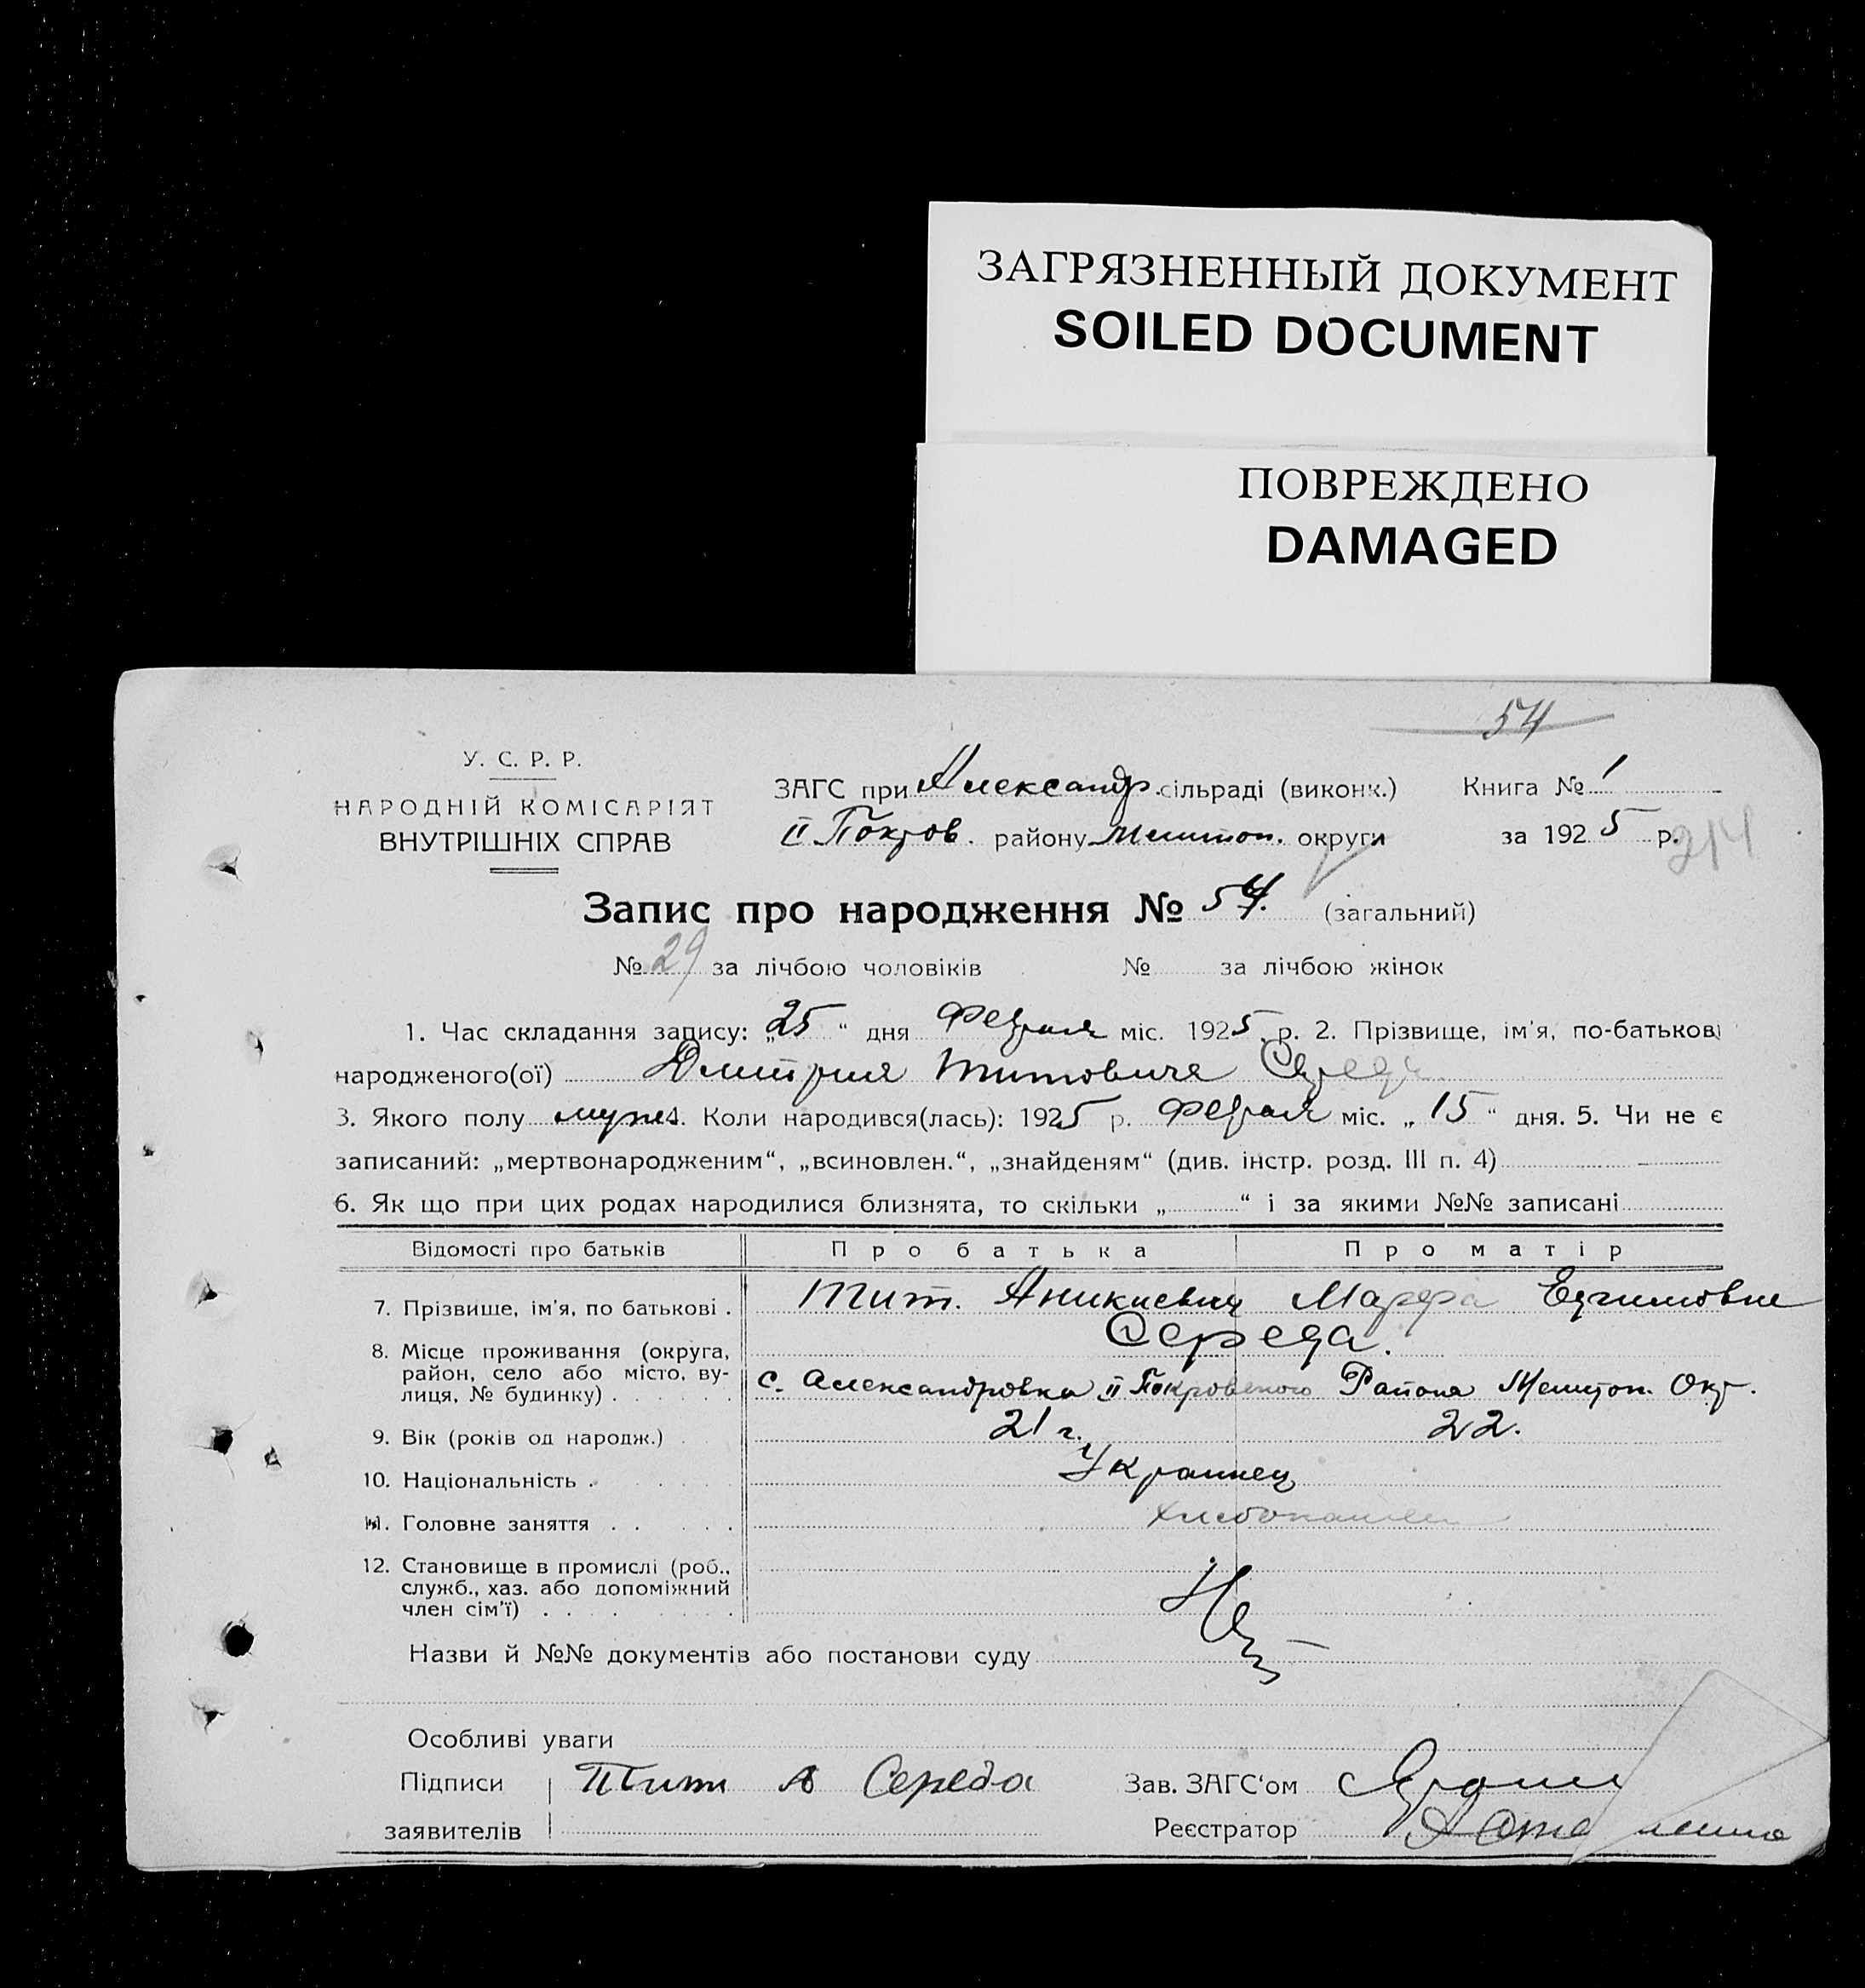 ЗАГРЯЗНЕННЫЙ ДОКУМЕНТ
SOILED DOCUMENT
ПОВРЕЖДЕНО
DAMAGED
54
У. С. Р. Р.
НАРОДНІЙ КОМІСАРІЯТ
ВНУТРІШНІХ СПРАВ
ЗАГС при Александр. сільраді (виконк.)
II Покров. району Мелитоп. округи
Книга № 1
за 1925 р.
214
Запис про народження № 54. (загальний)
№ 29 за лічбою чоловіків № за лічбою жінок
1. Час складання запису: „25“ дня Февраля міс. 1925 р. 2. Прізвище, ім'я, по-батькові
народженого(ої) Дмитрия Титовича Середа
3. Якого полу муж. 4. Коли народився(лась): 1925 р. Февраля міс. „15“ дня. 5. Чи не є
записаний: „мертвонародженим“, „всиновлен.“, „знайденям“ (див. інстр. розд. III п. 4)
6. Як що при цих родах народилися близнята, то скільки „ “ і за якими №№ записані
Відомості про батьків Про батька Про матір
7. Прізвище, ім'я, по батькові . Тит. Аникиевич Марфа
Середа.
8. Місце проживання (округа,
район, село або місто, ву-
лиця, № будинку) . . . . . . с. Александровка II Покровского Района Мелитоп. Окр.
9. Вік (років од народж.) . 21 г. 22.
10. Національність . . . . . Украинец
11. Головне заняття . . . . . хлебопашец
12. Становище в промислі (роб.,
служб., хаз. або допоміжний
член сім'ї) . . . . . . . .
Назви й №№ документів або постанови суду Нет
Особливі уваги
Підписи Тит А Середа Зав. ЗАГС'ом
заявителів Реєстратор